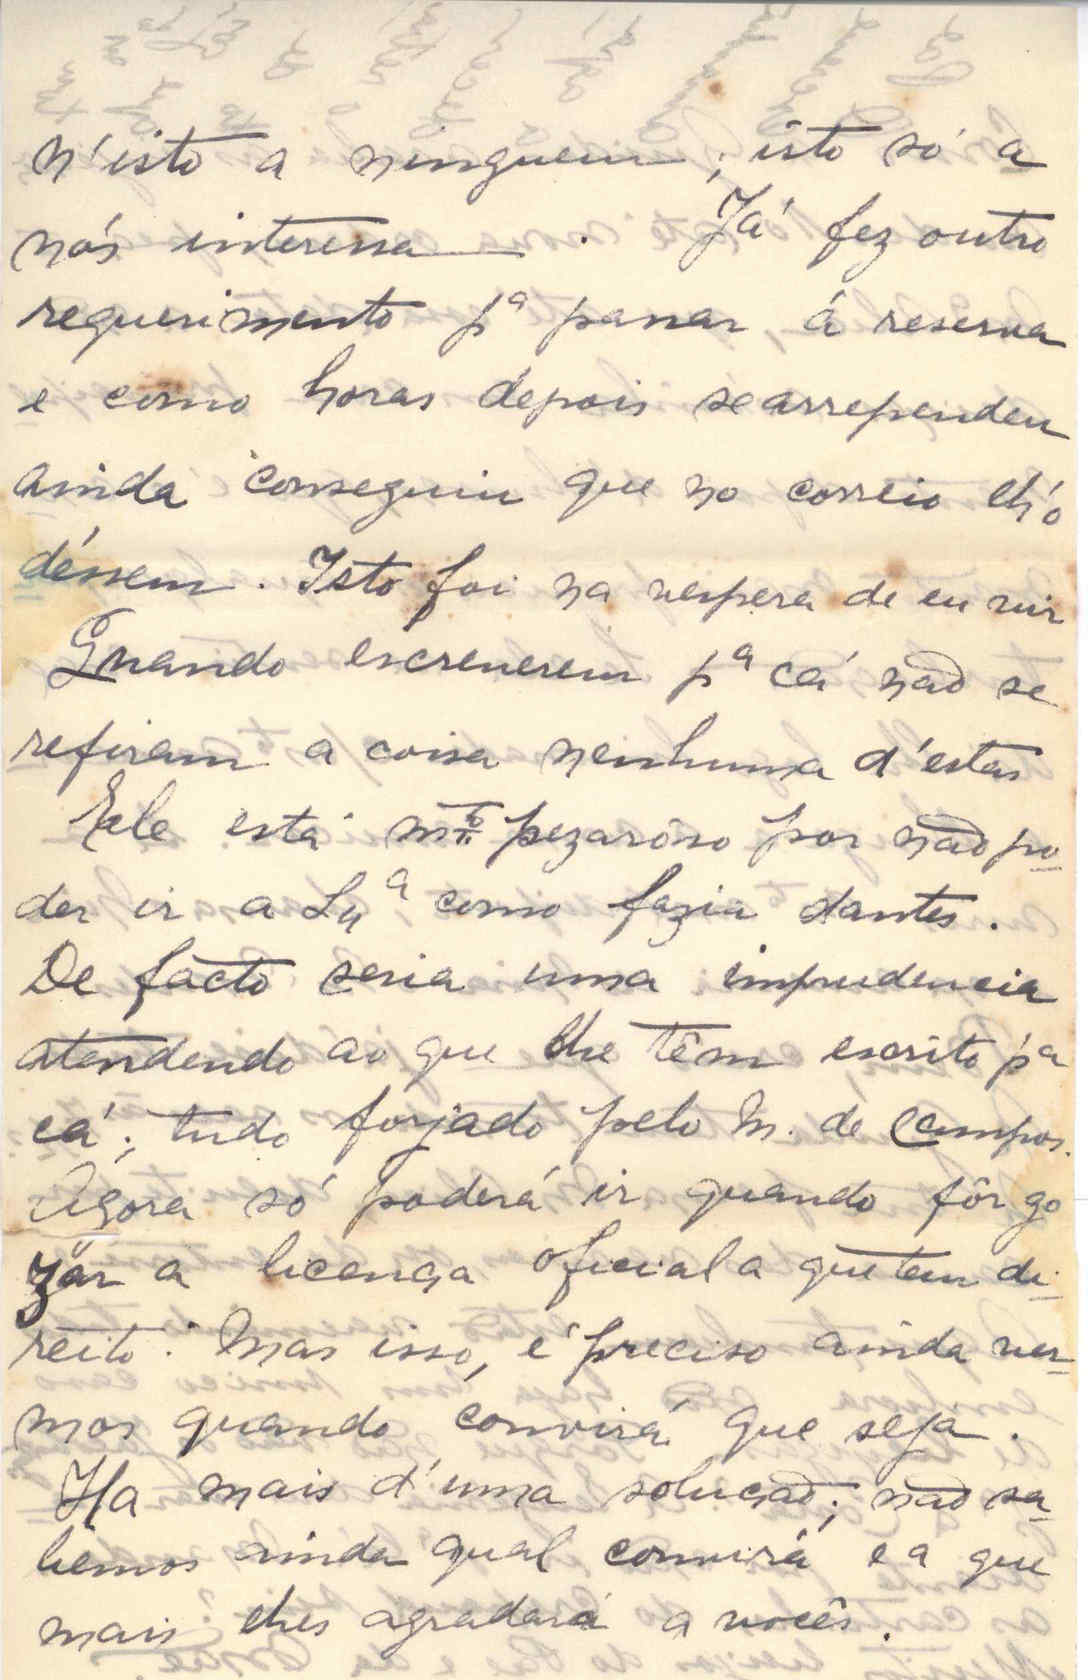 n'isto a ninguem; isto só a
nós interessa. Já fez outro
requerimento pª passar á reserva
e como horas depois se arrependeu
ainda conseguiu que no correio lh'o
déssem. Isto foi na vespera de eu vir
Quando escreverem pª cá não se
refiram a coisa nenhuma d'estas
Ele está mto pezarôso por não po-
der ir a Lxª como fazia dantes.
De facto seria uma imprudencia
atendendo ao que lhe têm escrito pª
cá; tudo forjado pelo M. de Campos.
Agora só poderá ir quando fôr go
zar a licença oficial a que tem di-
reito. Mas isso, é preciso ainda ver-
mos quando convirá que seja.
Ha mais d'uma solução; não sa-
bemos ainda qual convirá e a que
mais lhes agradará a vocês.